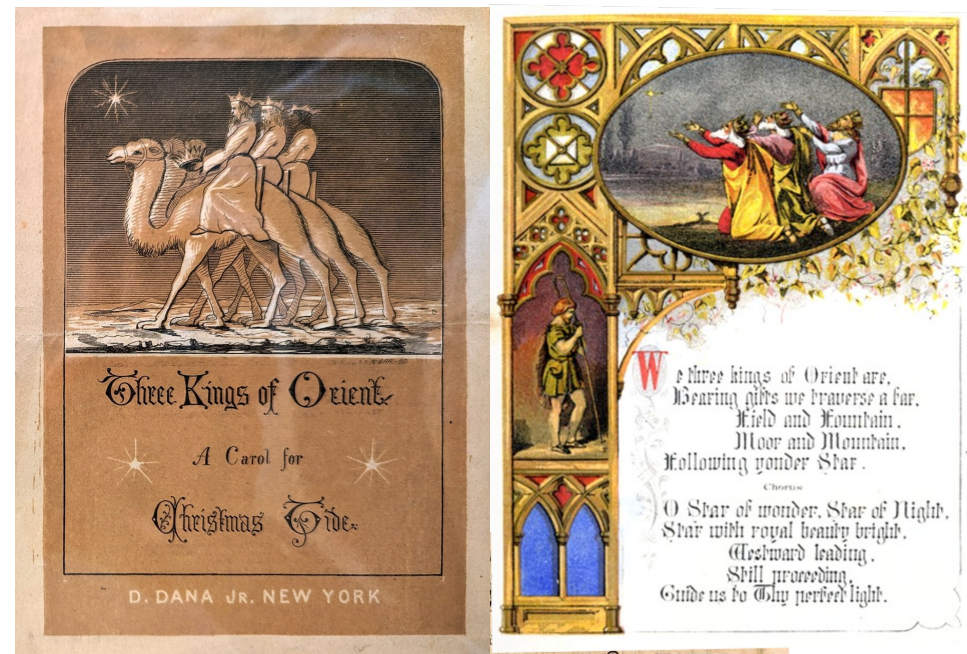 Three Kings of Orient
A Carol for
Christmas Tide
D. DANA JR. NEW YORK
We three kings of Orient are,
Bearing gifts we traverse afar,
Field and Fountain,
Moor and Mountain,
Following yonder Star.
Chorus
O Star of wonder, Star of Night,
Star with royal beauty bright,
Westward leading,
Still proceeding,
Guide us to Thy perfect light.